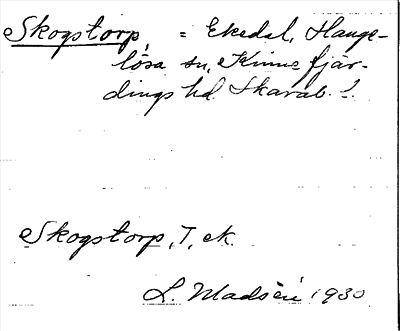 Skogstorp, = Ekedal, Hange-
lösa sn, Kinne fjär-
dings hd. Skarab. l.
Skogstorp, T, ek.
L. Madsén 1930